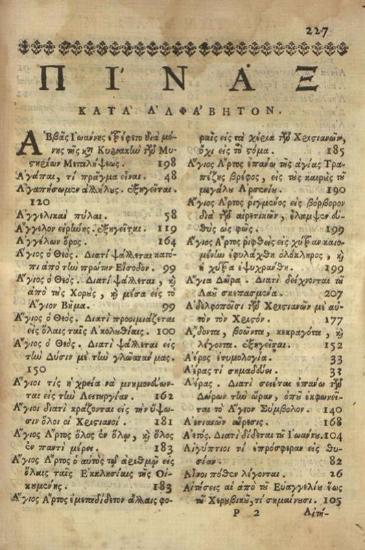 227
ΠΙΝΑΞ
ΚΑΤΑ Ἀ΄ΛΦΑ΄ΒΗΤΟΝ.
Ἀββᾶς Ἰωάννης
Μυ-
στηρίων Μεταλήψεως. 198
Ἀγάπαι, τί πρᾶγμα εἶναι. 48
Ἀγαπήσωμεν ἀλλήλυς. ἐξηγεῖται.
120
Ἀγγελικαὶ πύλαι. 58
Ἄγγελον εἰρήνης. ἐξηγεῖται. 119
Ἀγγέλων ὄρος. 164
Ἅγιος ὁ Θεός. Διατί ψάλλεται κατό-
πι ἀπὸ τὴν πρώτην Εἴσοδον. 99
Ἅγιος ὁ Θεός. Διατί ψάλλεται, ἢ
ἀπὸ τὺς Χορὺς, ἢ μέσα εἰς τὸ
Ἅγιον Βῆμα. 99
Ἅγιος ὁ Θεός. Διατί προοιμιάζεται
εἰς ὅλαις ταῖς Ἀκολυθίαις. 100
Ἅγιος ὁ Θεός. Διατί ψάλλεται εἰς
τὴν Δύσιν μὲ τὴν γλῶσσάν μας.
150
Ἅγιοι τίς ἡ χρεία νὰ μνημονεύων-
ται εἰς τὴν Λειτυργίαν. 162
Ἅγιοι διατί κράζονται εἰς τὴν ὕψω-
σιν ὅλοι οἱ Χριστιανοί. 181
Ἅγιος Ἄρτος ὅλος ἐν ὅλῳ, ἢ ὅλος
ἐν παντὶ μέρει. 183
Ἅγιος Ἄρτος ὁ αὐτὸς τῷ ἀριθμῷ εἰς
ὅλαις ταῖς Ἐκκλησίαις τῆς Οἰ-
κυμένης. 183
Ἅγιος Ἄρτος ἐμεταδίδετο ἄλλαις φο-
ραῖς εἰς τὰ χέρια τῶν Χριστιανῶν,
ὄχι εἰς τὸ στόμα. 185
Ἅγιος Ἄρτος ἐπάνω τῆς ἁγίας Τρα-
πέζης βρέφος, εἰς τὺς καιρὺς τῦ
μεγάλυ Ἀρσενίυ. 190
Ἅγιος Ἄρτος ῥιγμένος εἰς βόρβορον
διὰ τῶν αἱρετικῶν, ἔλαμψεν εὐ-
θὺς ὡς φῶς. 199
Ἅγιος Ἄρτος ῥιφθεὶς εἰς
ἐφυλάχθη ὁλόκληρος, ἢ
ἡ ἐψυχράνθη. 199
Ἅγια Δῶρα. Διατί δείχνονται τῦ
Λαῦ σκεπασμένα. 207
Ἀδελφοποίησι τῶν Χριστιανῶν μὲ αὐ-
τὸν τὸν Χριστόν. 177
ᾌδοντα, βοῶντα, κεκραγότα, ἢ
λέγοντα. ἐξηγεῖται. 152
Ἀέρος ἐτυμολογία. 33
Ἀέρας τί σημαδεύει. 33
Ἀέρας. Διατί σείεται ἐπάνω τῶν
Δώρων τὴν ὥραν, ὁπῦ ἐκφωνεῖ-
ται τὸ Ἅγιον Σύμβολον. 140
αἵρεσις. 168
Ἀετός. Διατί δίδεται τῦ Ἰωάννῃ. 104
Αἰγύπτιοι τί ἐπρόσφεραν εἰς θυ-
σίαν. 82
Αἶνοι πόθεν λέγονται. 26
Αἰτήσεις αἱ ἀπὸ τῦ Εὐαγγελίυ ἕως
τῦ Χερυβικῦ, τί σημαίνυσι. 105
P 2
Αἰτή-